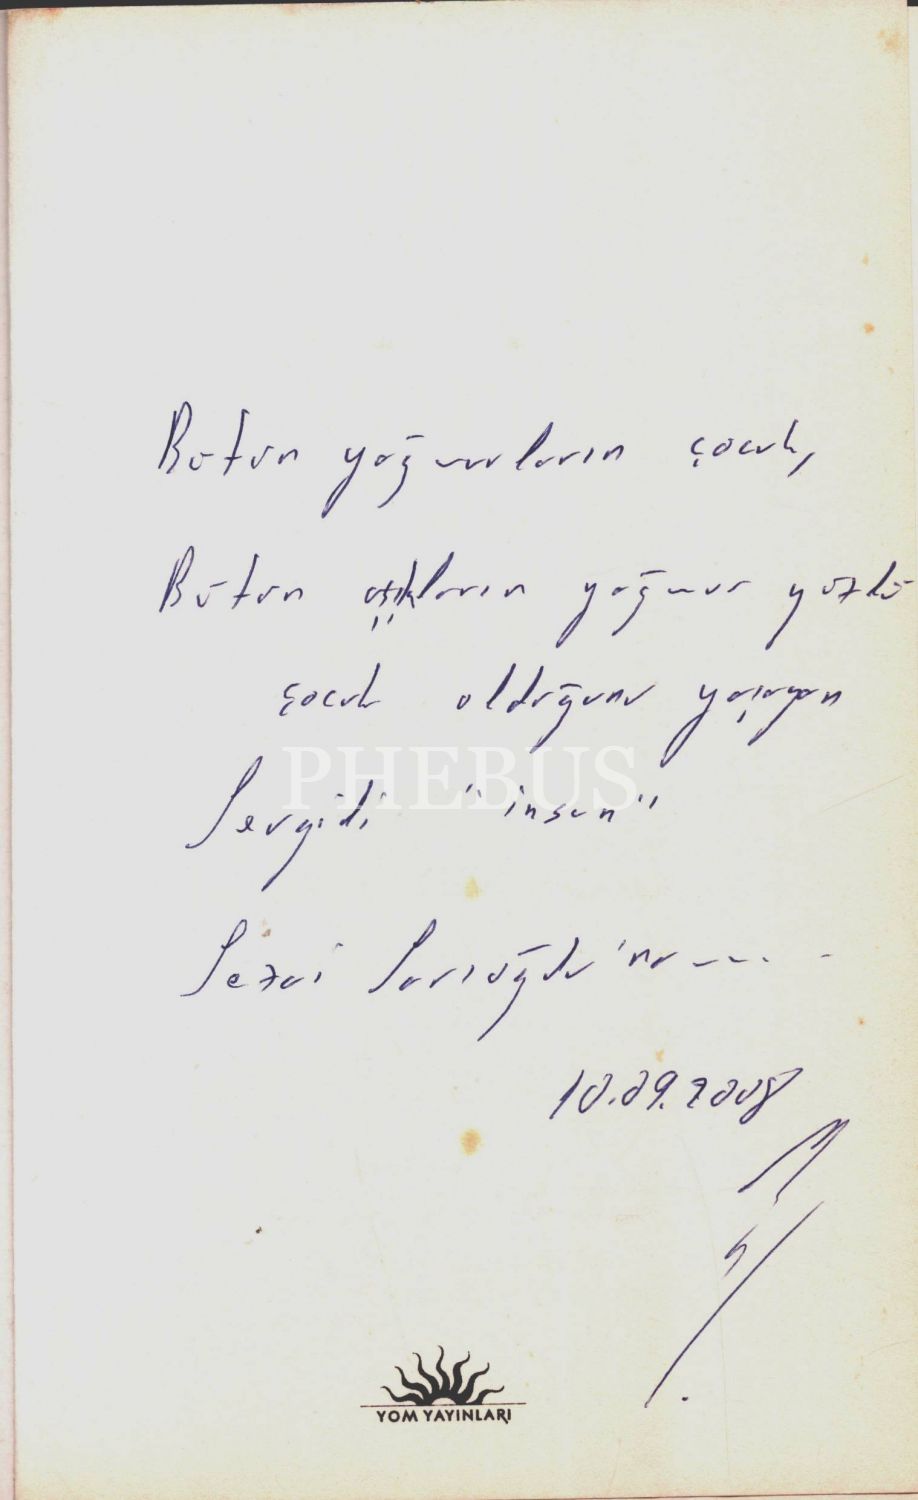 Bütün yağmurların çocuk,
Bütün aşıkların yağmur yüzlü
çocuk olduğunu yaşayan
PHEBUS
Sevgili "insan"
Sezai Sarıoğlu'na......
10.09.2008
YOM YAYINLARI